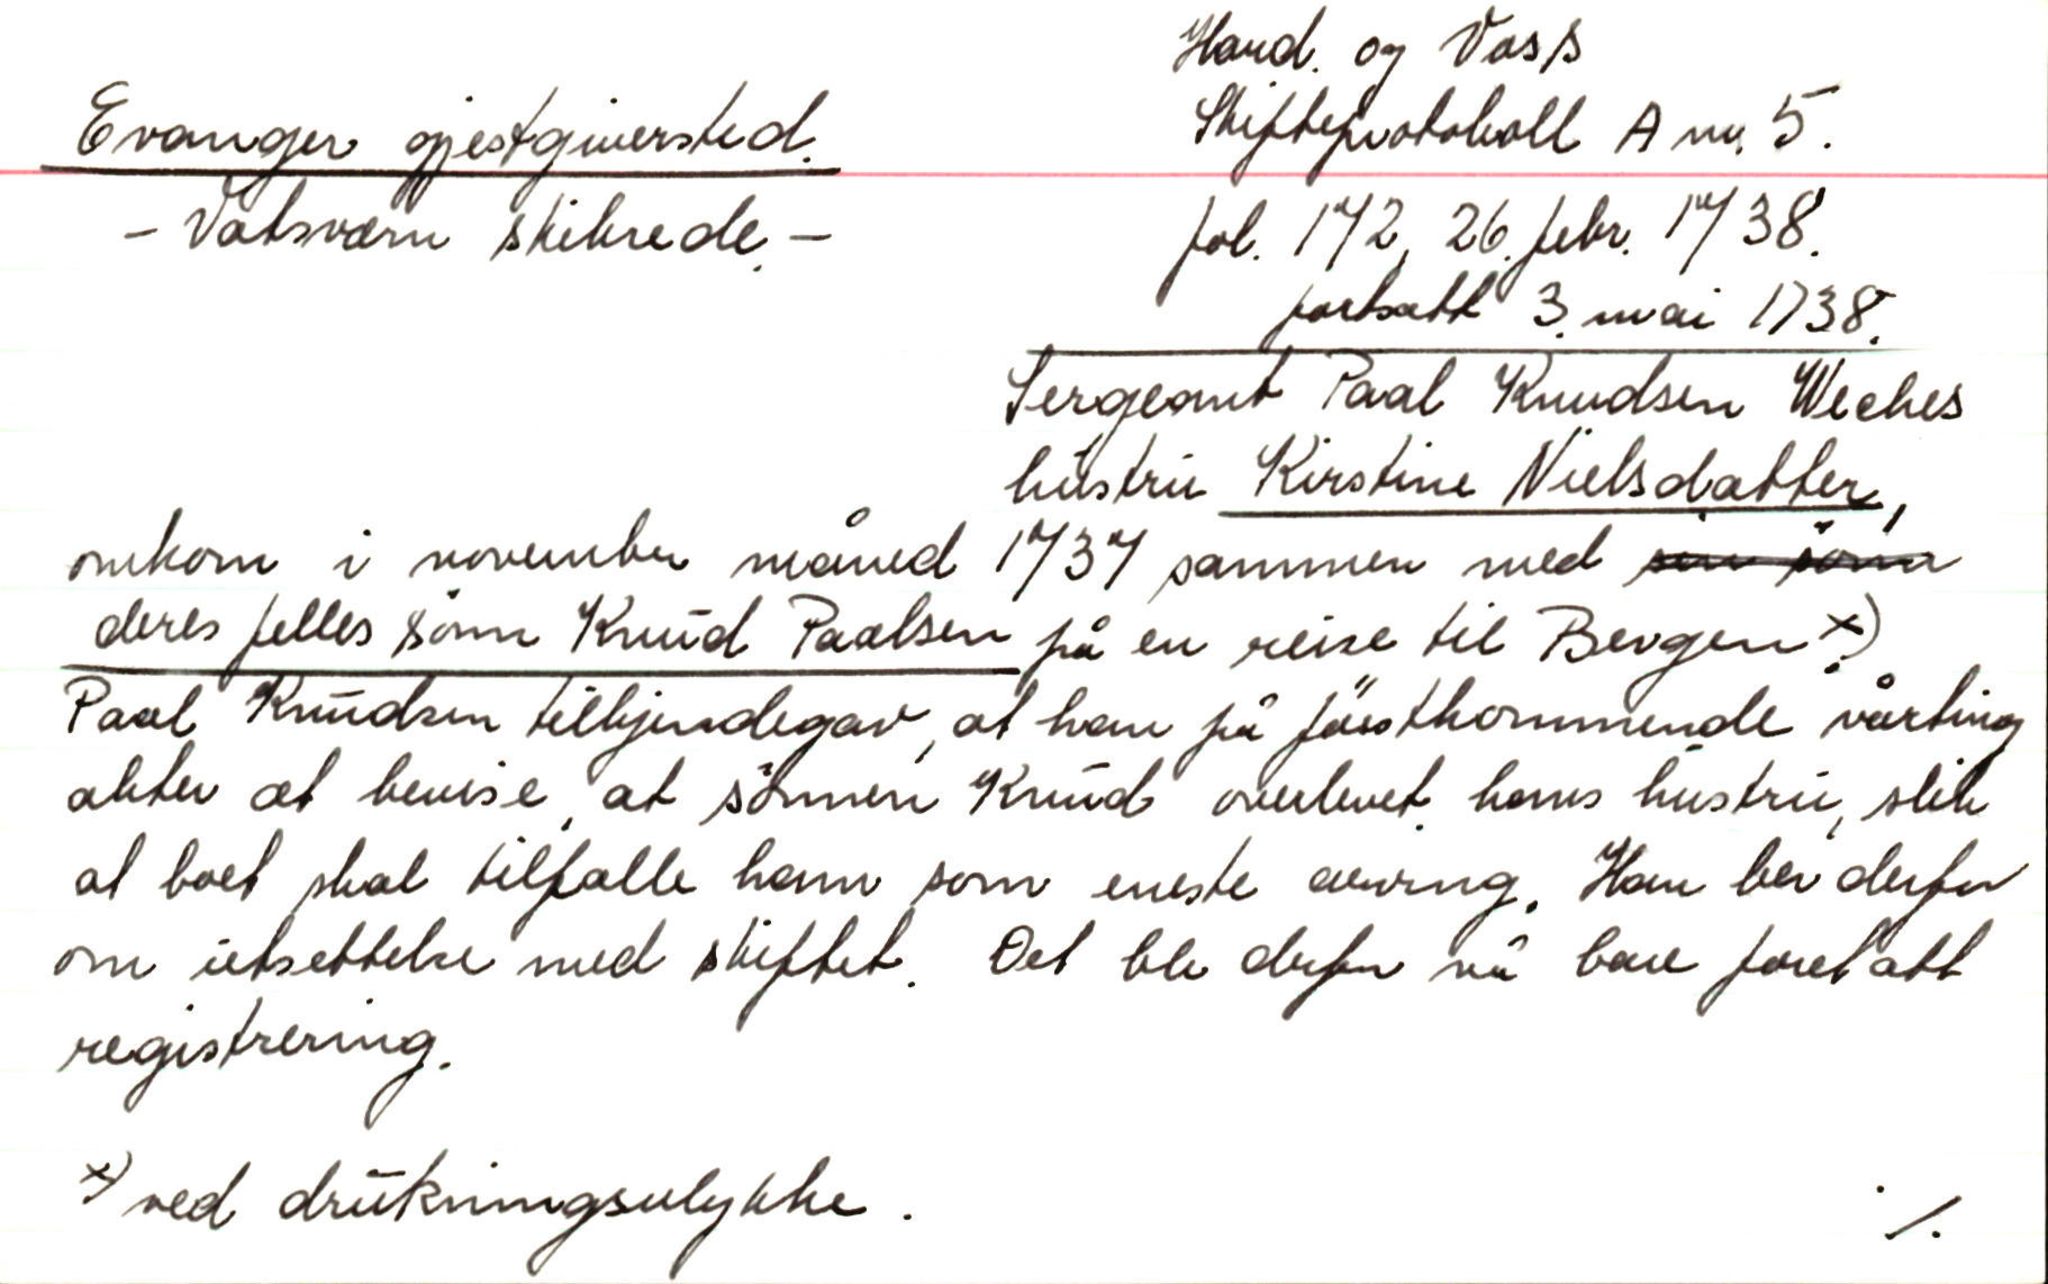 Evanger gjestgiversted.
- Vatsværn skibrede. -
Hard. og Voss
Skifteprotokoll A nr. 5.
fol. 172, 26. febr. 1738.
fortsatt 3. mai 1738.
Sergeant Paal Knudsen Weches
hustru Kirstine Nielsdatter,
omkom i november måned 1737 sammen med sin sønn
deres felles sønn Knud Paalsen på en reise til Bergen x).
Paal Knudsen tilkjendegav, at han på førstkommende vårting
akter at bevise, at sønnen Knud overlevet hans hustru, slik
at boet skal tilfalle ham som eneste arving. Han ber derfor
om utsettelse med skiftet. Det ble derfor nå bare foretatt
registrering.
x) ved drukningsulykke.
./.